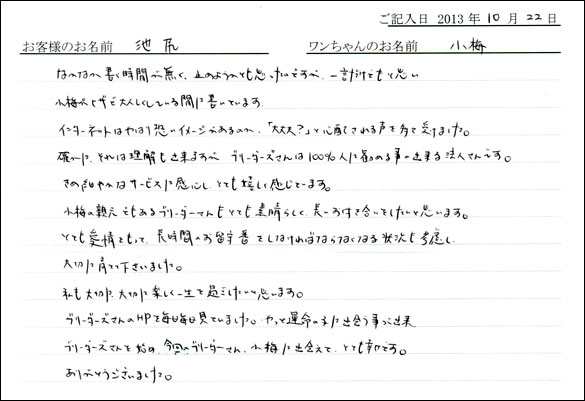 ご記入日 2013 年 10 月 22 日
お客様のお名前 池尻 ワンちゃんのお名前 小梅
なかなか書く時間が無く、止めようかとも思ったのですが、一言だけでもと思い
小梅がヒザで大人しくしている間に書いています。
インターネットはやはり恐いイメージがあるのか、「大丈夫?」と心配される声を多く受けました。
確かに、それは理解も出来ますが ブリーダーズさんは100%人に勧める事の出来る法人さんです。
きめ細やかなサービスに感心し、とても嬉しく感じています。
小梅の親元でもあるブリーダーさんもとても素晴らしく、長いお付き合いをしたいと思います。
とても愛情をもって、長時間のお留守番をしなければならなくなる状況も考慮し、
大切に育てて下さいました。
私も大切に、大切に楽しく一生を過ごしたいと思います。
ブリーダーズさんのHPを毎日毎日見ていました。やっと運命の子に出会う事が出来
ブリーダーズさんを始め、今回のブリーダーさん、小梅に出会えて、とても幸せです。
ありがとうございました。